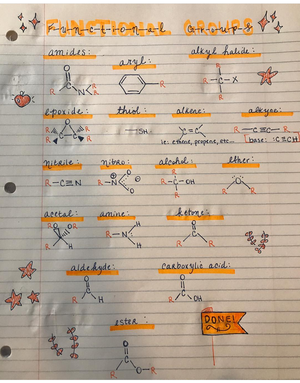 FUNCTIONAL GROUPS
amides: aryl: alkyl halide:
O
C
R N R
R
R
R
C-X
epoxide: thiol: alkene: alkyne:
R O R
R C-C R
-SH
C=C
R-C≡C-R
ie: ethene, propene, etc...
base: :C≡CH
nitrile: nitro: alcohol: ether:
R-C≡N
R-N
O
O
R-C-OH
R O R
acetal: amine: ketone:
RO OR
R H
R-N
H
H
O
C
R R
aldehyde: carboxylic acid:
O
C
R H
O
C
R OH
ester:
DONE!
O
C
R O-R